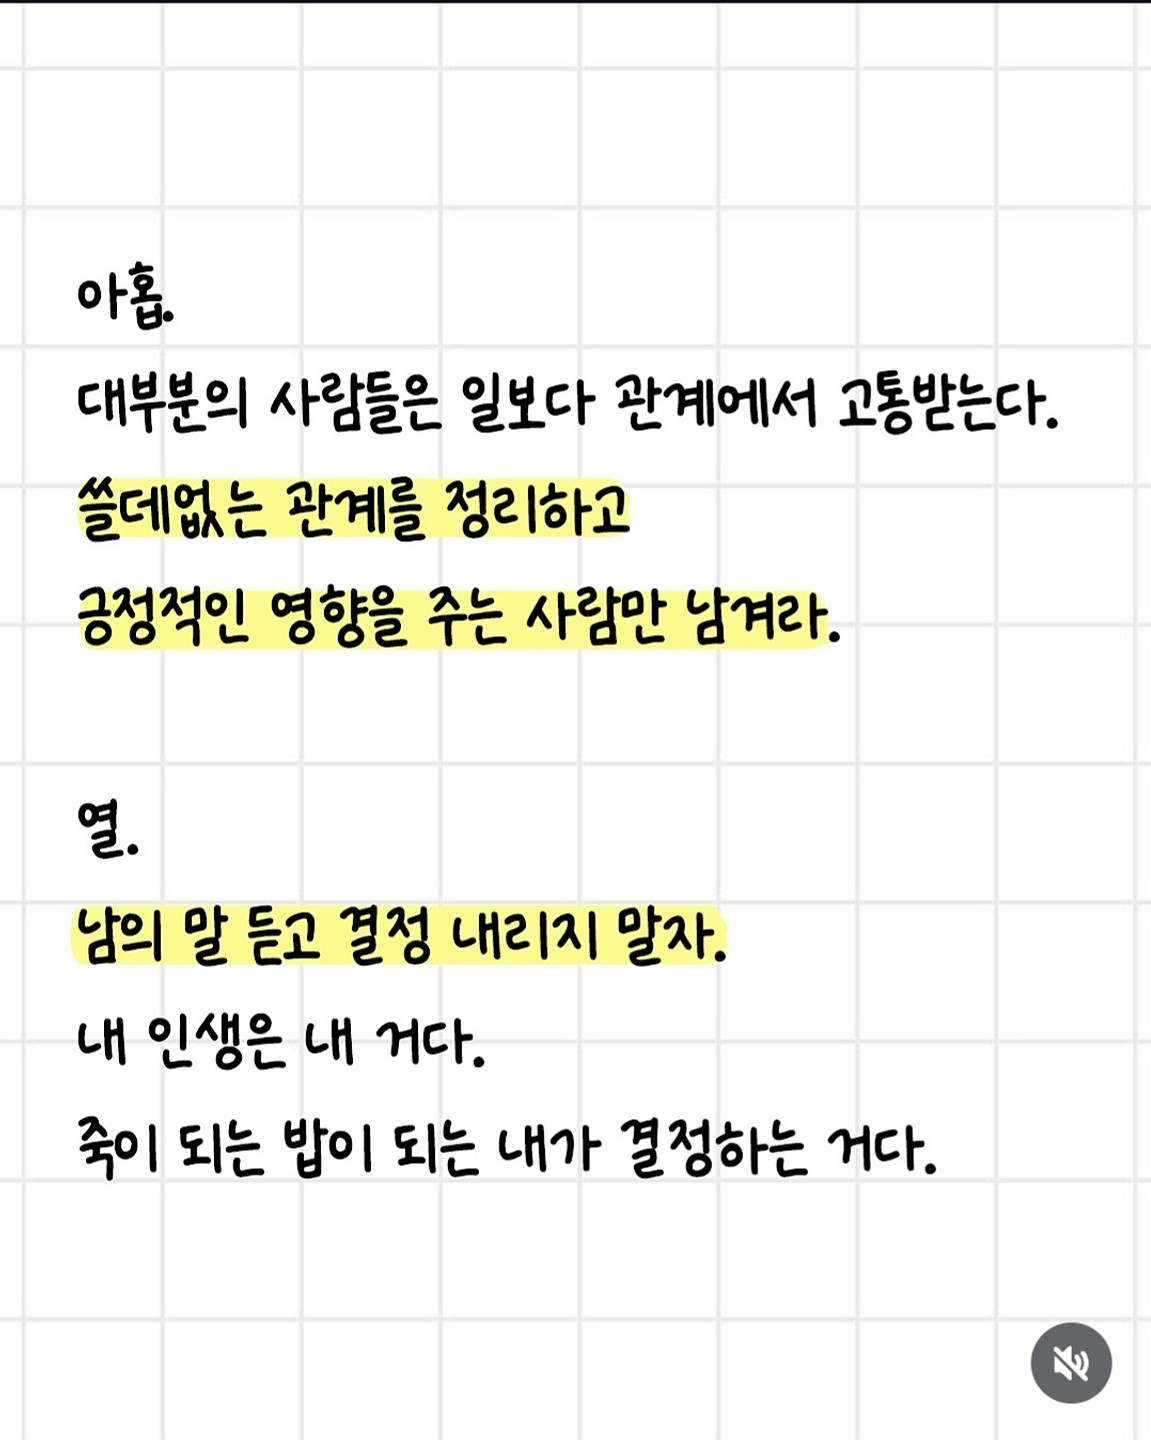 아홉.
대부분의 사람들은 일보다 관계에서 고통받는다.
쓸데없는 관계를 정리하고
긍정적인 영향을 주는 사람만 남겨라.
열.
남의 말 듣고 결정 내리지 말자.
내 인생은 내 거다.
죽이 되는 밥이 되는 내가 결정하는 거다.